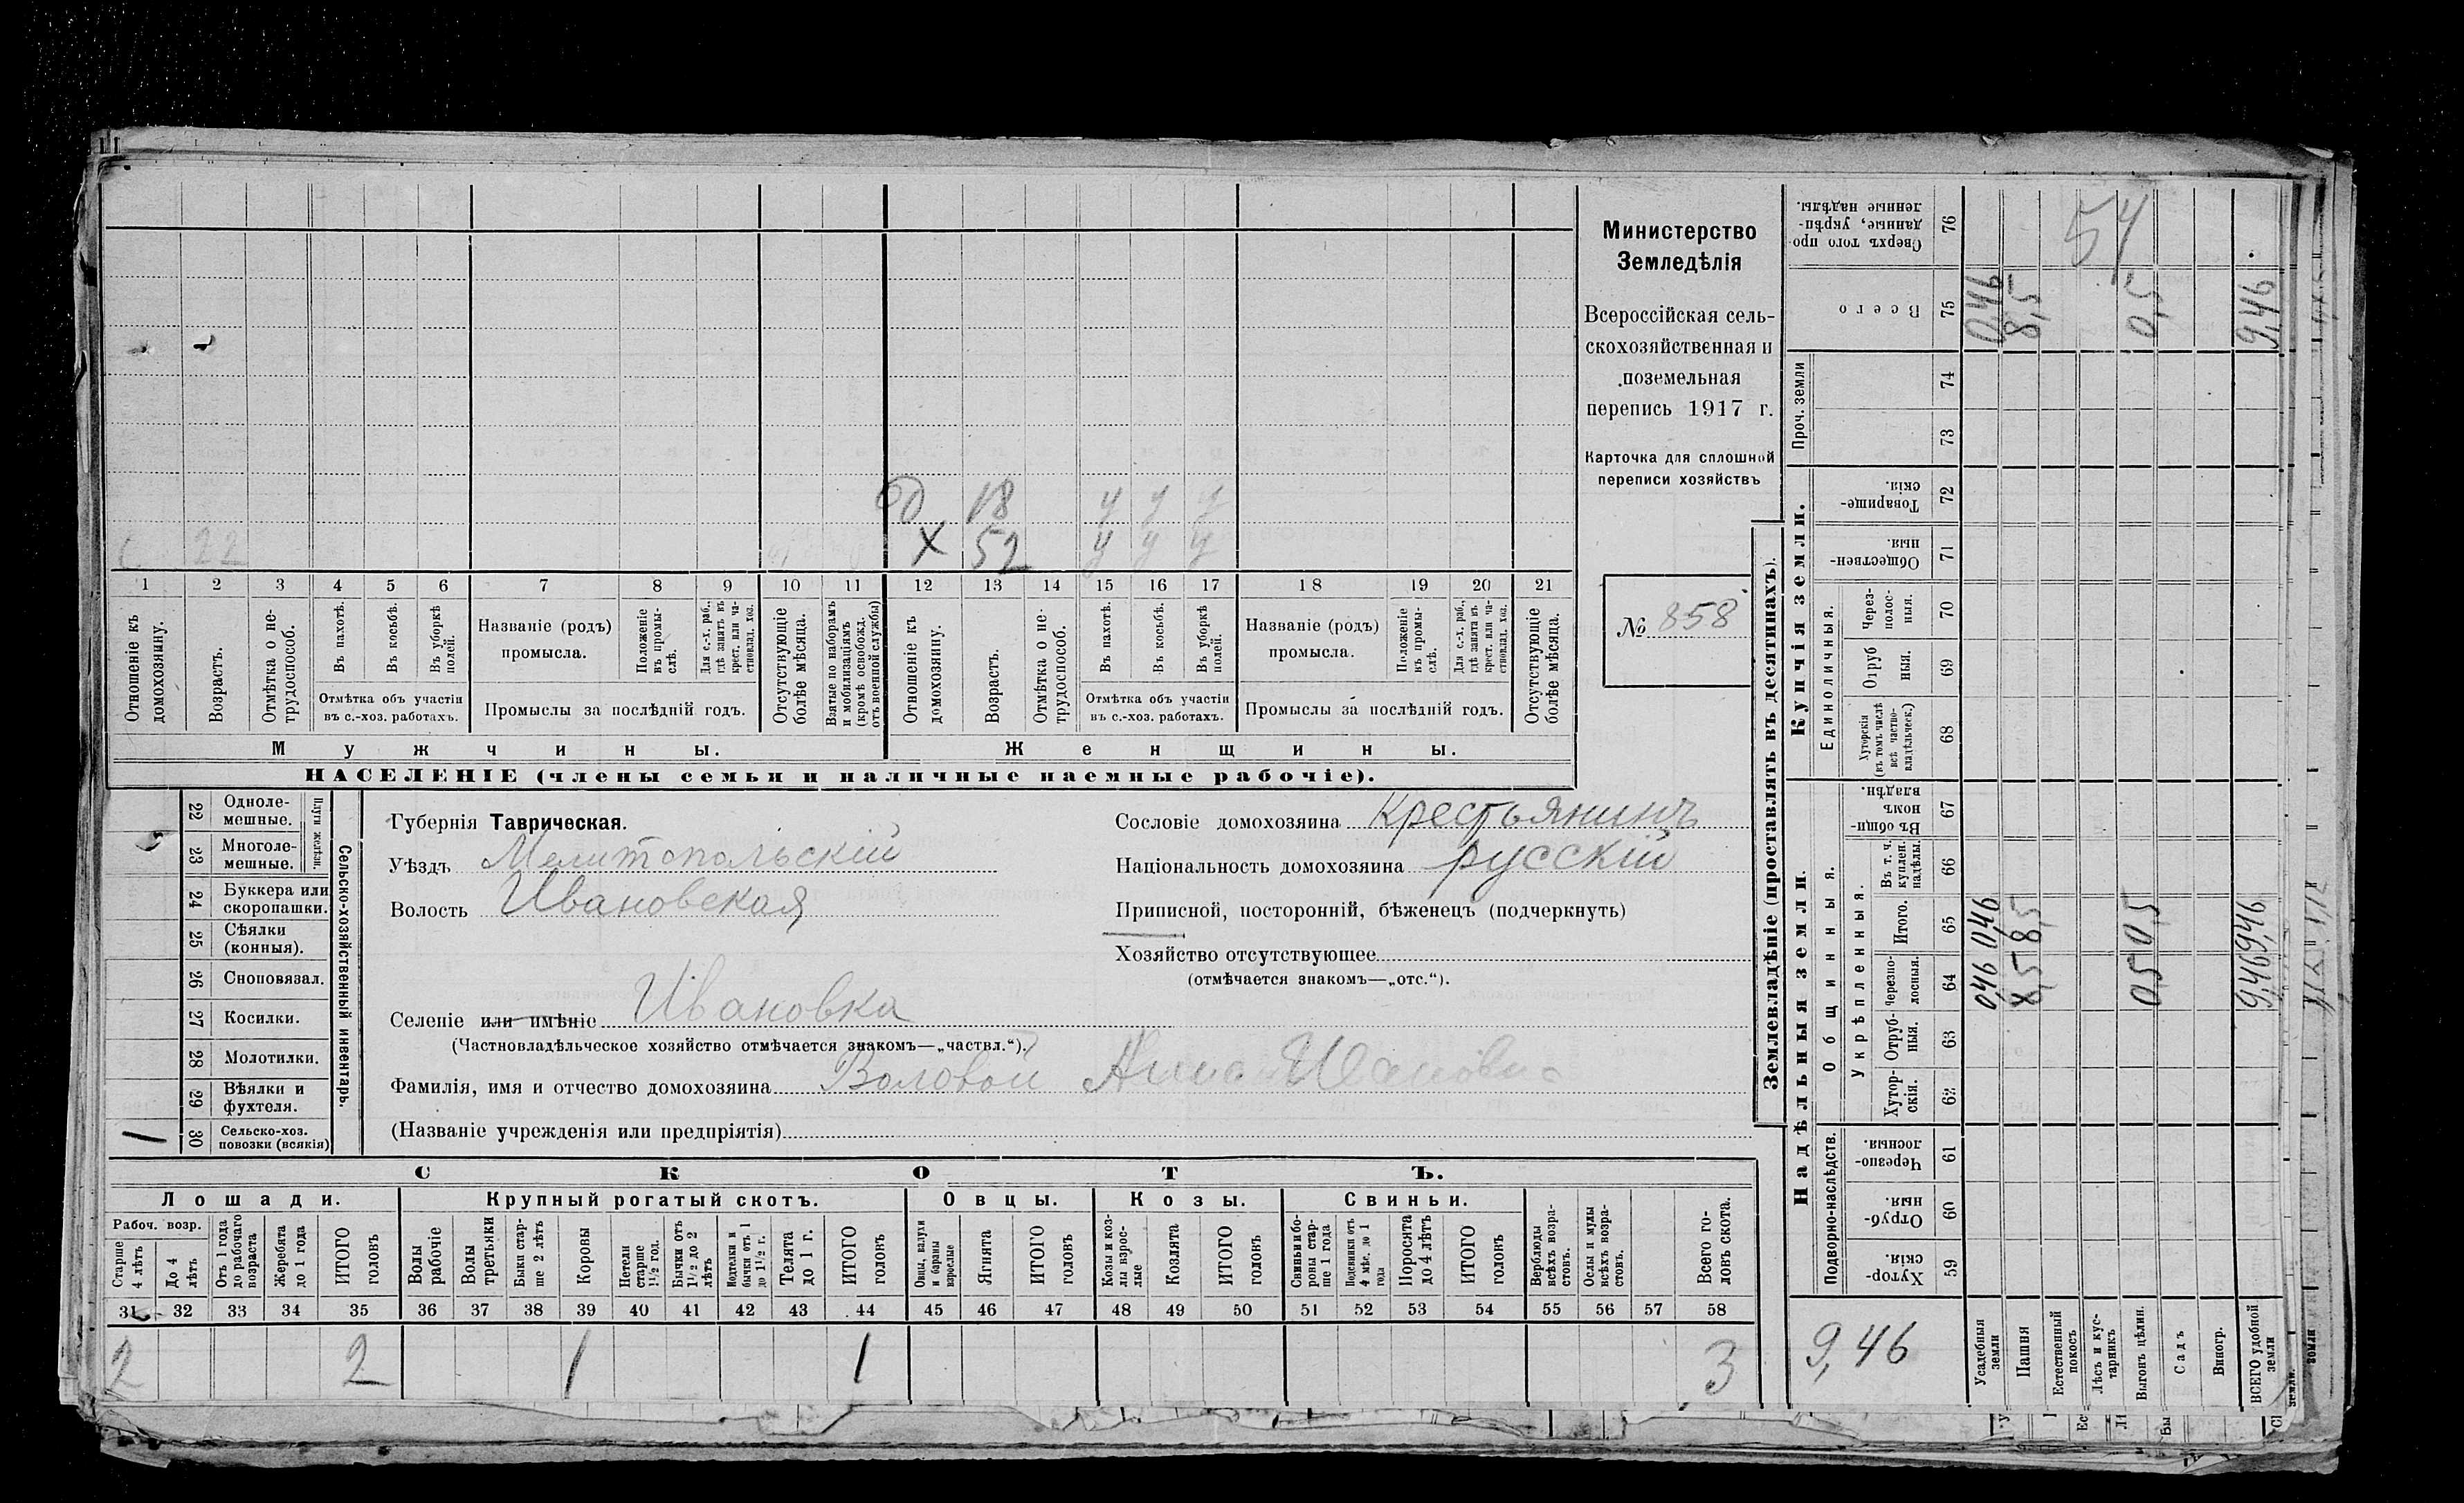 Министерство
Земледѣлія
Всероссійская сель-
скохозяйственная и
поземельная
перепись 1917 г.
Карточка для сплошной
переписи хозяйствъ
№ 858
18 у у у
Х 52 у у у
22
1 2 3 4 5 6 7 8 9 10 11 12 13 14 15 16 17 18 19 20 21
Отношеніе къ домохозяину.
Возрастъ.
Отмѣтка о не-трудоспособ.
Въ пахотѣ.
Въ косьбѣ.
Въ уборкѣ полей.
Отмѣтка объ участіи въ с.-хоз. работахъ.
Названіе (родъ) промысла.
Положеніе въ промы-слѣ.
Для с.-х. раб., гдѣ занятъ въ крест. или ча-стновлад. хоз.
Промыслы за послѣдній годъ.
Отсутствующіе болѣе мѣсяца.
Взятые по наборамъ и мобилизаціямъ (кромѣ освобожд. отъ военной службы)
Отношеніе къ домохозяину.
Возрастъ.
Отмѣтка о не-трудоспособ.
Въ пахотѣ.
Въ косьбѣ.
Въ уборкѣ полей.
Отмѣтка объ участіи въ с.-хоз. работахъ.
Названіе (родъ) промысла.
Положеніе въ промы-слѣ.
Для с.-х. раб., гдѣ занятъ въ крест. или ча-стновлад. хоз.
Промыслы за послѣдній годъ.
Отсутствующіе болѣе мѣсяца.
Мужчины. Женщины.
НАСЕЛЕНІЕ (члены семьи и наличные наемные рабочіе).
22 Одноле-мешные.
23 Многоле-мешные.
Плуги желѣзн.
24 Буккера или скоропашки.
25 Сѣялки (конныя).
26 Сноповязал.
27 Косилки.
28 Молотилки.
29 Вѣялки и фухтеля.
1 30 Сельско-хоз. повозки (всякія)
Сельско-хозяйственный инвентарь.
Губернія Таврическая.
Уѣздъ Мелитопольскій
Волость Ивановская
Селеніе или имѣніе Ивановка
(Частновладѣльческое хозяйство отмѣчается знакомъ—„частвл.“).
Фамилія, имя и отчество домохозяина Воловой Анна Ивановна
(Названіе учрежденія или предпріятія)
Сословіе домохозяина крестьянинъ
Національность домохозяина русскій
Приписной, посторонній, бѣженецъ (подчеркнуть)
Хозяйство отсутствующее
(отмѣчается знакомъ—„отс.“).
СКОТЪ.
Лошади. Крупный рогатый скотъ. Овцы. Козы. Свиньи.
Рабоч. возр.
Старше 4 лѣтъ
До 4 лѣтъ
Отъ 1 года до рабочаго возраста
Жеребята до 1 года
ИТОГО головъ
Волы рабочіе
Волы третьяки
Быки стар-ше 2 лѣтъ
Коровы
Нетели старше 1½ год.
Бычки отъ 1½ до 2 лѣтъ
Телята до 1 г.
ИТОГО головъ
Овцы, валухи и бараны взрослые
Ягнята
ИТОГО головъ
Козы и коз-лы взрос-лые
Козлята
ИТОГО головъ
Свиньи и бо-ровы стар-ше 1 года
Подсвинки отъ 4 мѣс. до 1 года
Поросята до 4 лѣтъ
ИТОГО головъ
Верблюды всѣхъ возра-стовъ.
Ослы и мулы всѣхъ возра-стовъ.
Всего го-ловъ скота.
31 32 33 34 35 36 37 38 39 40 41 42 43 44 45 46 47 48 49 50 51 52 53 54 55 56 57 58
2 2 1 1 3
Землевладѣніе (проставлять въ десятинахъ).
Купчія земли.
Надѣльныя земли.
Сверхъ того про-данные, укрѣп-ленные надѣлы. 76 54
Всего 75 0,46 8,5 0,5 9,46
Проч. земли 74 73
Товарище-скія. 72
Обществен-ныя. 71
Единоличныя.
Через-полос-ныя. 70
Отруб ныя. 69
Хуторскія (въ томъ числѣ всѣ частно-владѣльческ.) 68
Общинныя.
Въ общи-номъ владѣн. 67
Укрѣпленныя.
Въ т. ч. куплен. надѣлы. 66
Итого. 65 0,46 8,5 0,5 9,46
Черезпо-лосныя. 64 0,46 8,5 0,5 9,46
Отруб-ныя. 63
Хутор-скія. 62
Подворно-наслѣдств.
Черезпо-лосныя. 61
Отруб-ныя. 60
Хутор-скія. 59
9,46
Усадебныя земли
Пашня
Естественный покосъ
Лѣсъ и кус-тарникъ
Выгонъ цѣлин.
Садъ
Виногр.
ВСЕГО удобной земли